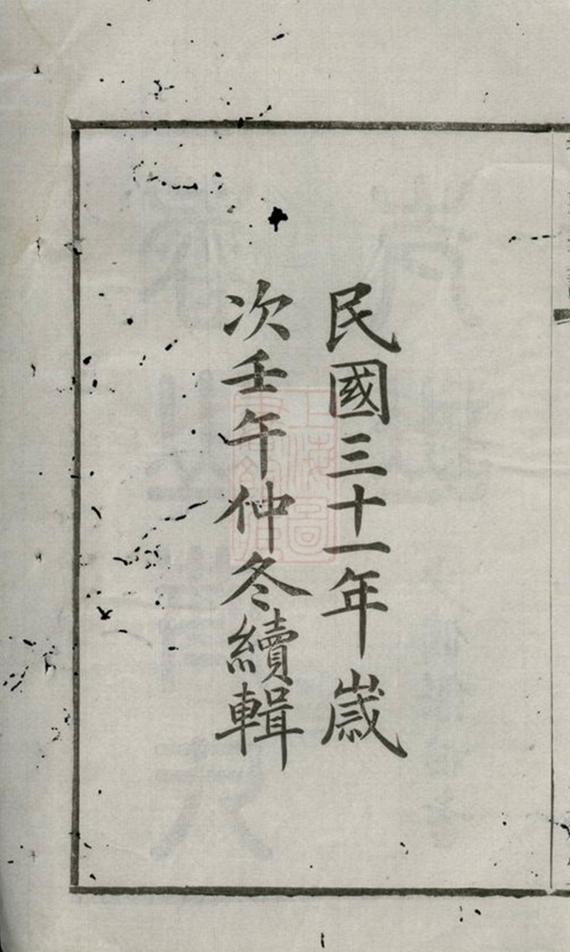 民國三十一年歲
次壬午仲冬續輯